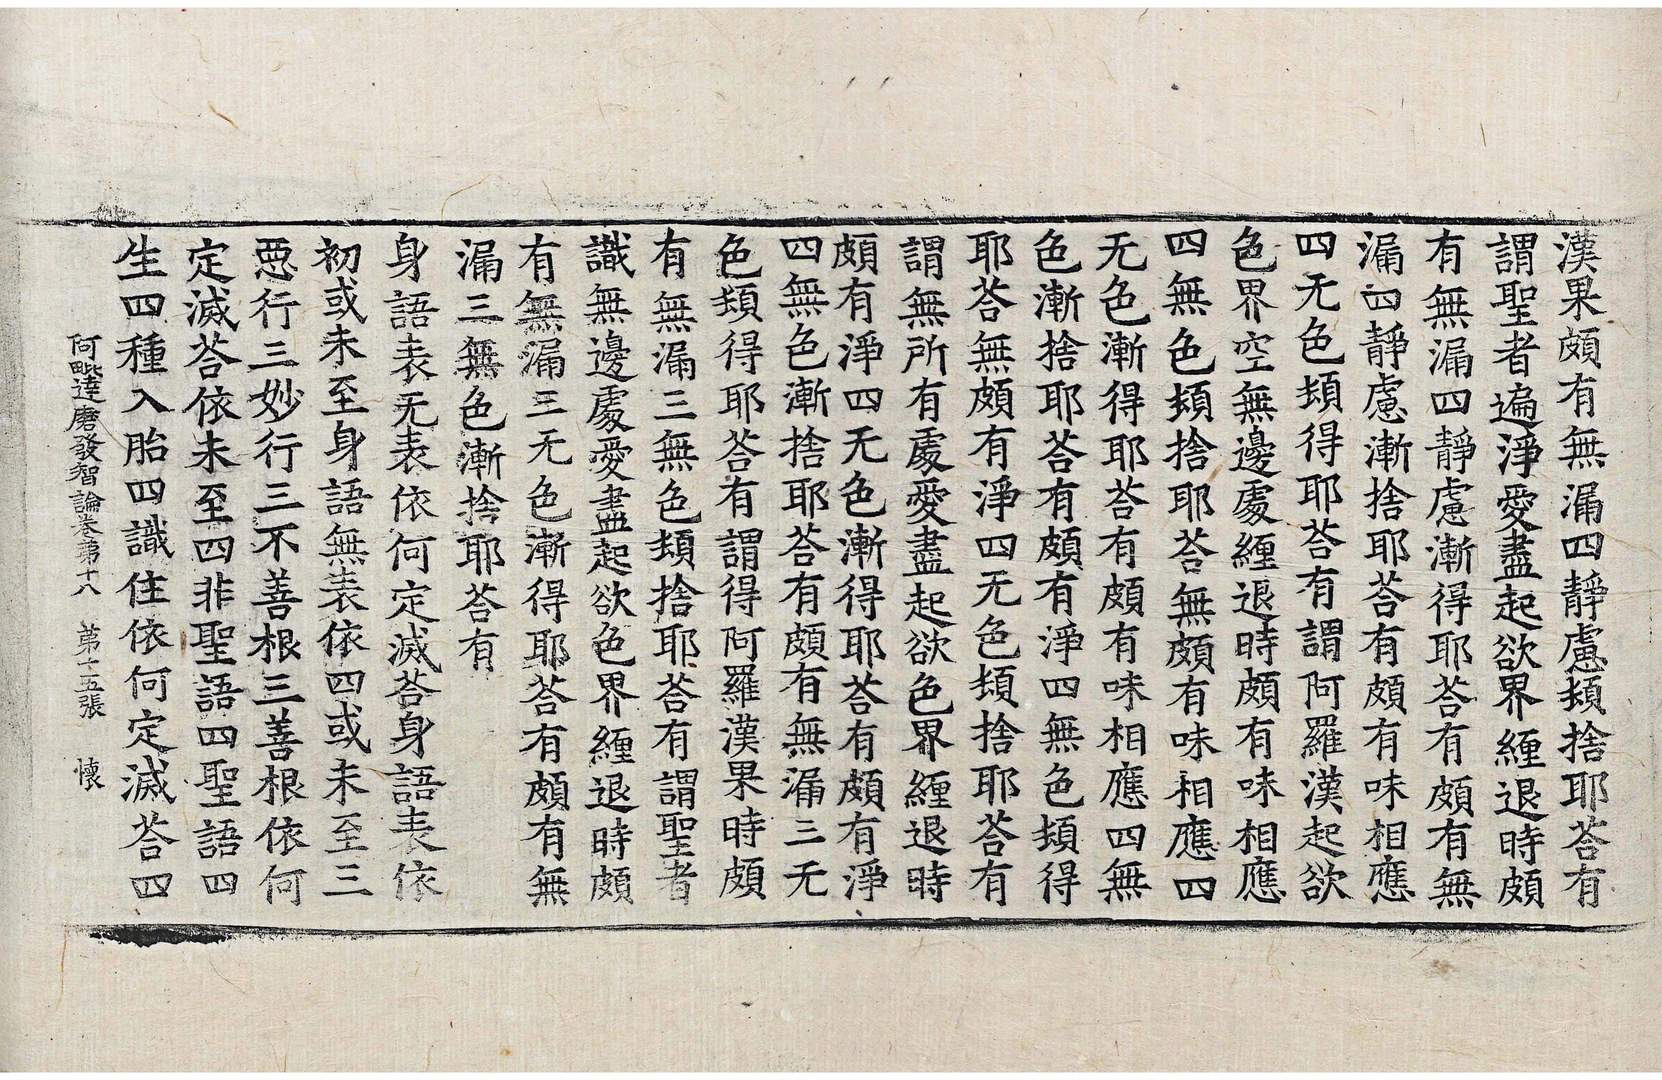 漢果頗有無漏四靜慮頓捨耶荅有
謂聖者遍淨愛盡起欲界纏退時頗
有無漏四靜慮漸得耶荅有頗有無
漏四靜慮漸捨耶荅有頗有味相應
四无色頓得耶荅有謂阿羅漢起欲
色界空無邊處纏退時頗有味相應
四無色頓捨耶荅無頗有味相應四
无色漸得耶荅有頗有味相應四無
色漸捨耶荅有頗有淨四無色頓得
耶荅無頗有淨四无色頓捨耶荅有
謂無所有處愛盡起欲色界纏退時
頗有淨四无色漸得耶荅有頗有淨
四無色漸捨耶荅有頗有無漏三无
色頓得耶荅有謂得阿羅漢果時頗
有無漏三無色頓捨耶荅有謂聖者
識無邊處愛盡起欲色界纏退時頗
有無漏三无色漸得耶荅有頗有無
漏三無色漸捨耶荅有
身語表无表依何定滅荅身語表依
初或未至身語無表依四或未至三
惡行三妙行三不善根三善根依何
定滅荅依未至四非聖語四聖語四
生四種入胎四識住依何定滅荅四
阿毗達磨發智論卷第十八 第十五張 懷